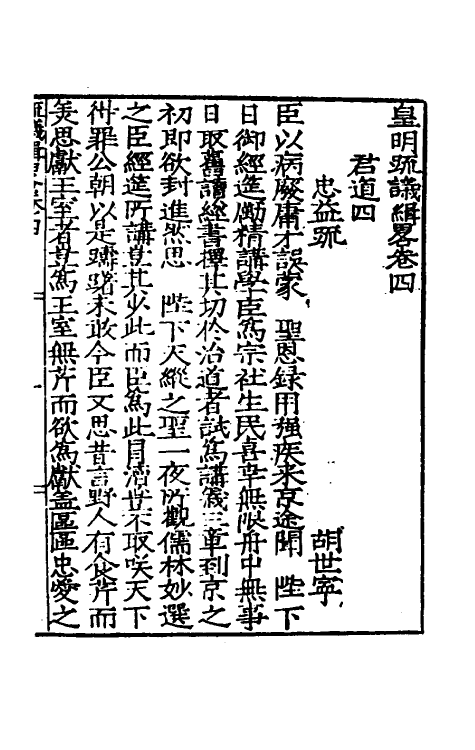 皇明疏議輯畧卷四
君道四
忠益疏
胡世寧
臣以病廢庸才誤蒙　聖恩録用强疾來京途聞　陛下
日御經筵勵精講學臣爲宗社生民喜幸無限舟中無事
日取舊讀經書擇其切於治道者試爲講義三章到京之
初即欲封進然思　陛下天縱之聖一夜所觀儒林妙選
之臣經筵所講豈其少此而臣爲此月瀆豈不取咲天下
得罪公朝以是躊躇未敢今臣又思昔言野人有食芹而
美思獻王室者豈爲王室無芹而欲爲獻盖區區忠愛之